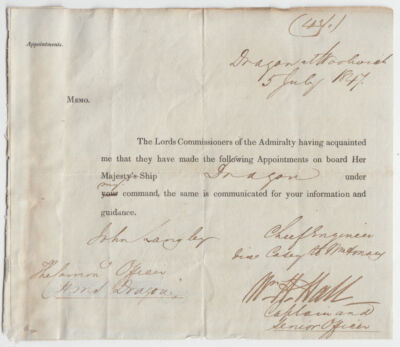 Appointments.
Dragon at Woolwich
5 July 1847.
MEMO.
The Lords Commissioners of the Admiralty having acquainted
me that they have made the following Appointments on board Her
Majesty's Ship Dragon under
my
your command, the same is communicated for your information and
guidance.
John Langley Chief Engineer
vice
The Officer
H.M.S Dragon
Wm H. Hall
Captain and
Senior Officer